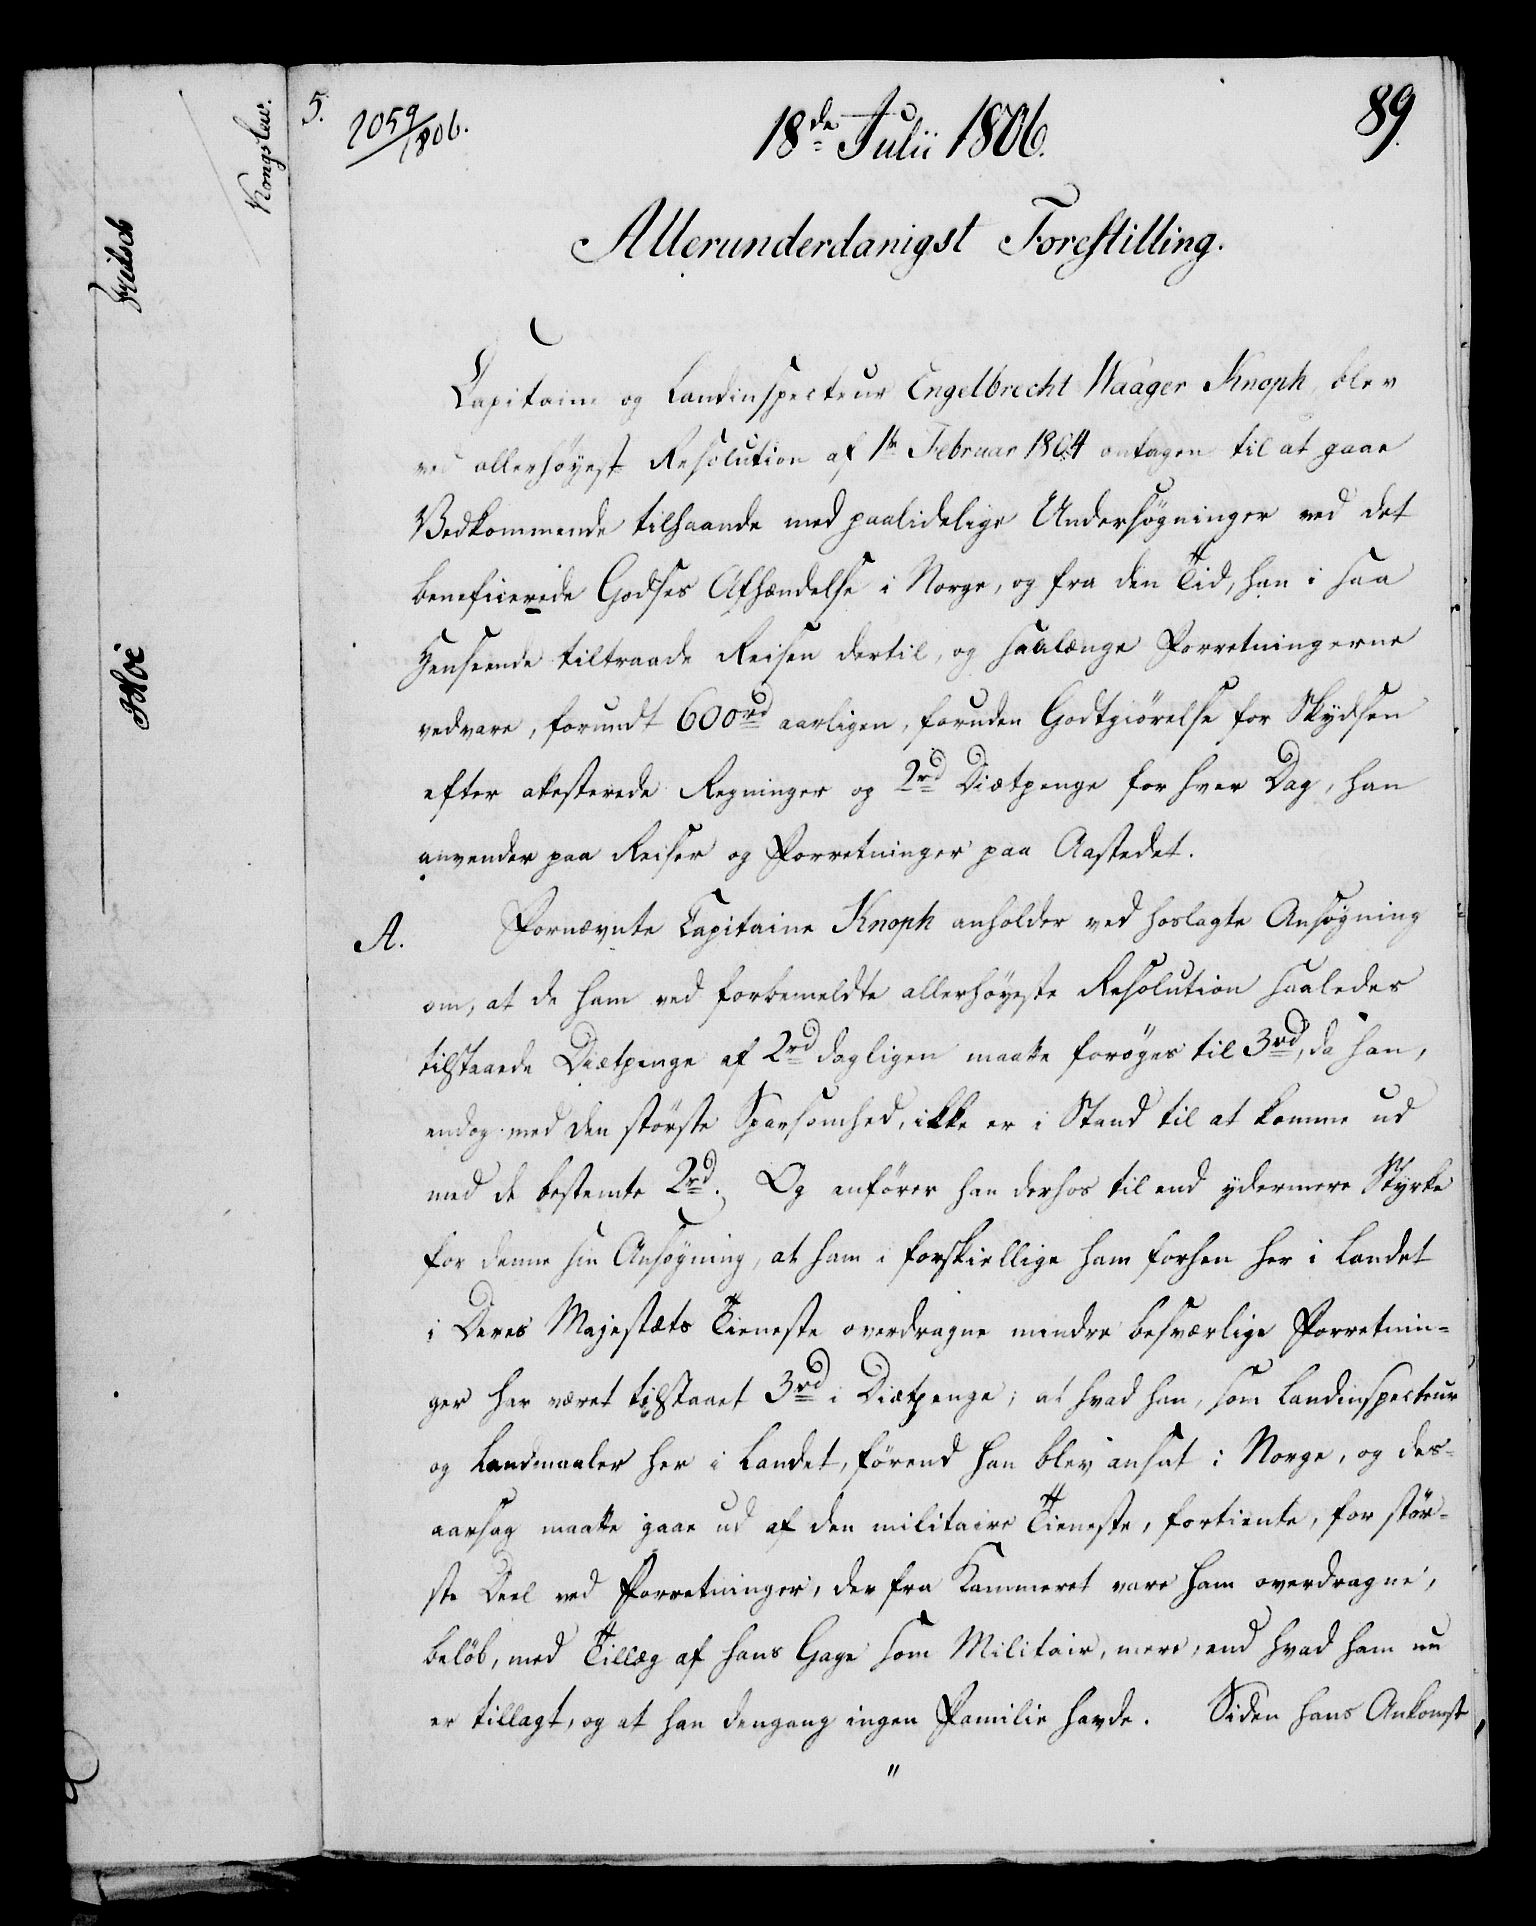 5.
2059/1806.
18de Julii 1806.
89.
Allerunderdanigst Forestilling.
Capitaine og Landinspecteur Engelbrecht Waager Knoph, blev
ved allerhöyest Resolution af 1te Februar 1804 antagen til at gaae
Vedkommende tilhaande med paalidelige Undersøgninger ved det
beneficerede Godses Afhændelse i Norge, og fra den Tid, han i saa
Henseende tiltraade Reisen dertil, og saalænge Forretningerne
vedvare, forundt 600rd aarligen, foruden Godtgiörelse for Skydsen
efter attesterede Regninger og 2rd Diætpenge for hver Dag, han
anvender paa Reiser og Forretninger paa Aastedet.
A. Fornævnte Capitaine Knoph anholder ved hoslagte Ansøgning
om, at de ham ved forbemeldte allerhöyeste Resolution saaledes
tilstaaede Diætpenge af 2rd dagligen maatte forøges til 3rd, da han,
endog med den störste Sparsomhed, ikke er i Stand til at komme ud
med de bestemte 2rd. Og anförer han derhos til end ydermere Styrke
for denne sin Ansøgning, at ham i forskiellige ham forhen her i Landet
i Deres Majestæts Tieneste overdragne mindre besværlige Forretnin-
ger har været tilstaaet 3rd i Diætpenge; at hvad han, som Landinspecteur
og Landmaaler her i Landet, förend han blev ansat i Norge, og des-
aarsag maatte gaae ud af den militaire Tieneste, fortiente, for stör-
ste Deel ved Forretninger, der fra Kammeret vare ham overdragne,
belöb, med Tillæg af hans Gage som Militair, mere, end hvad ham nu
er tillagt, og at han dengang ingen Familie havde. Siden hans Ankomst
"
Kongslew.
Hoë